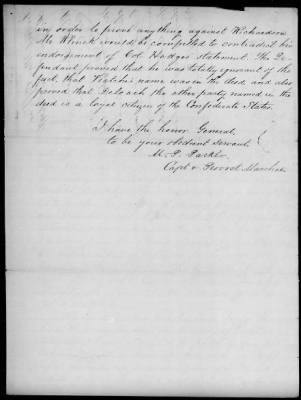 in order to prove anything against Richardson
Mr would be compelled to contradict his
endorsement of Col Hodges statement. The De-
fendant proved that he was totally ignorant of the
fact that name was in the deed and also
proved that DeLoach the other party named in the
deed is a loyal citizen of the Confederate States.
I have the honor General,
to be your obedient servant
M. P.
Capt & Provost Marshal